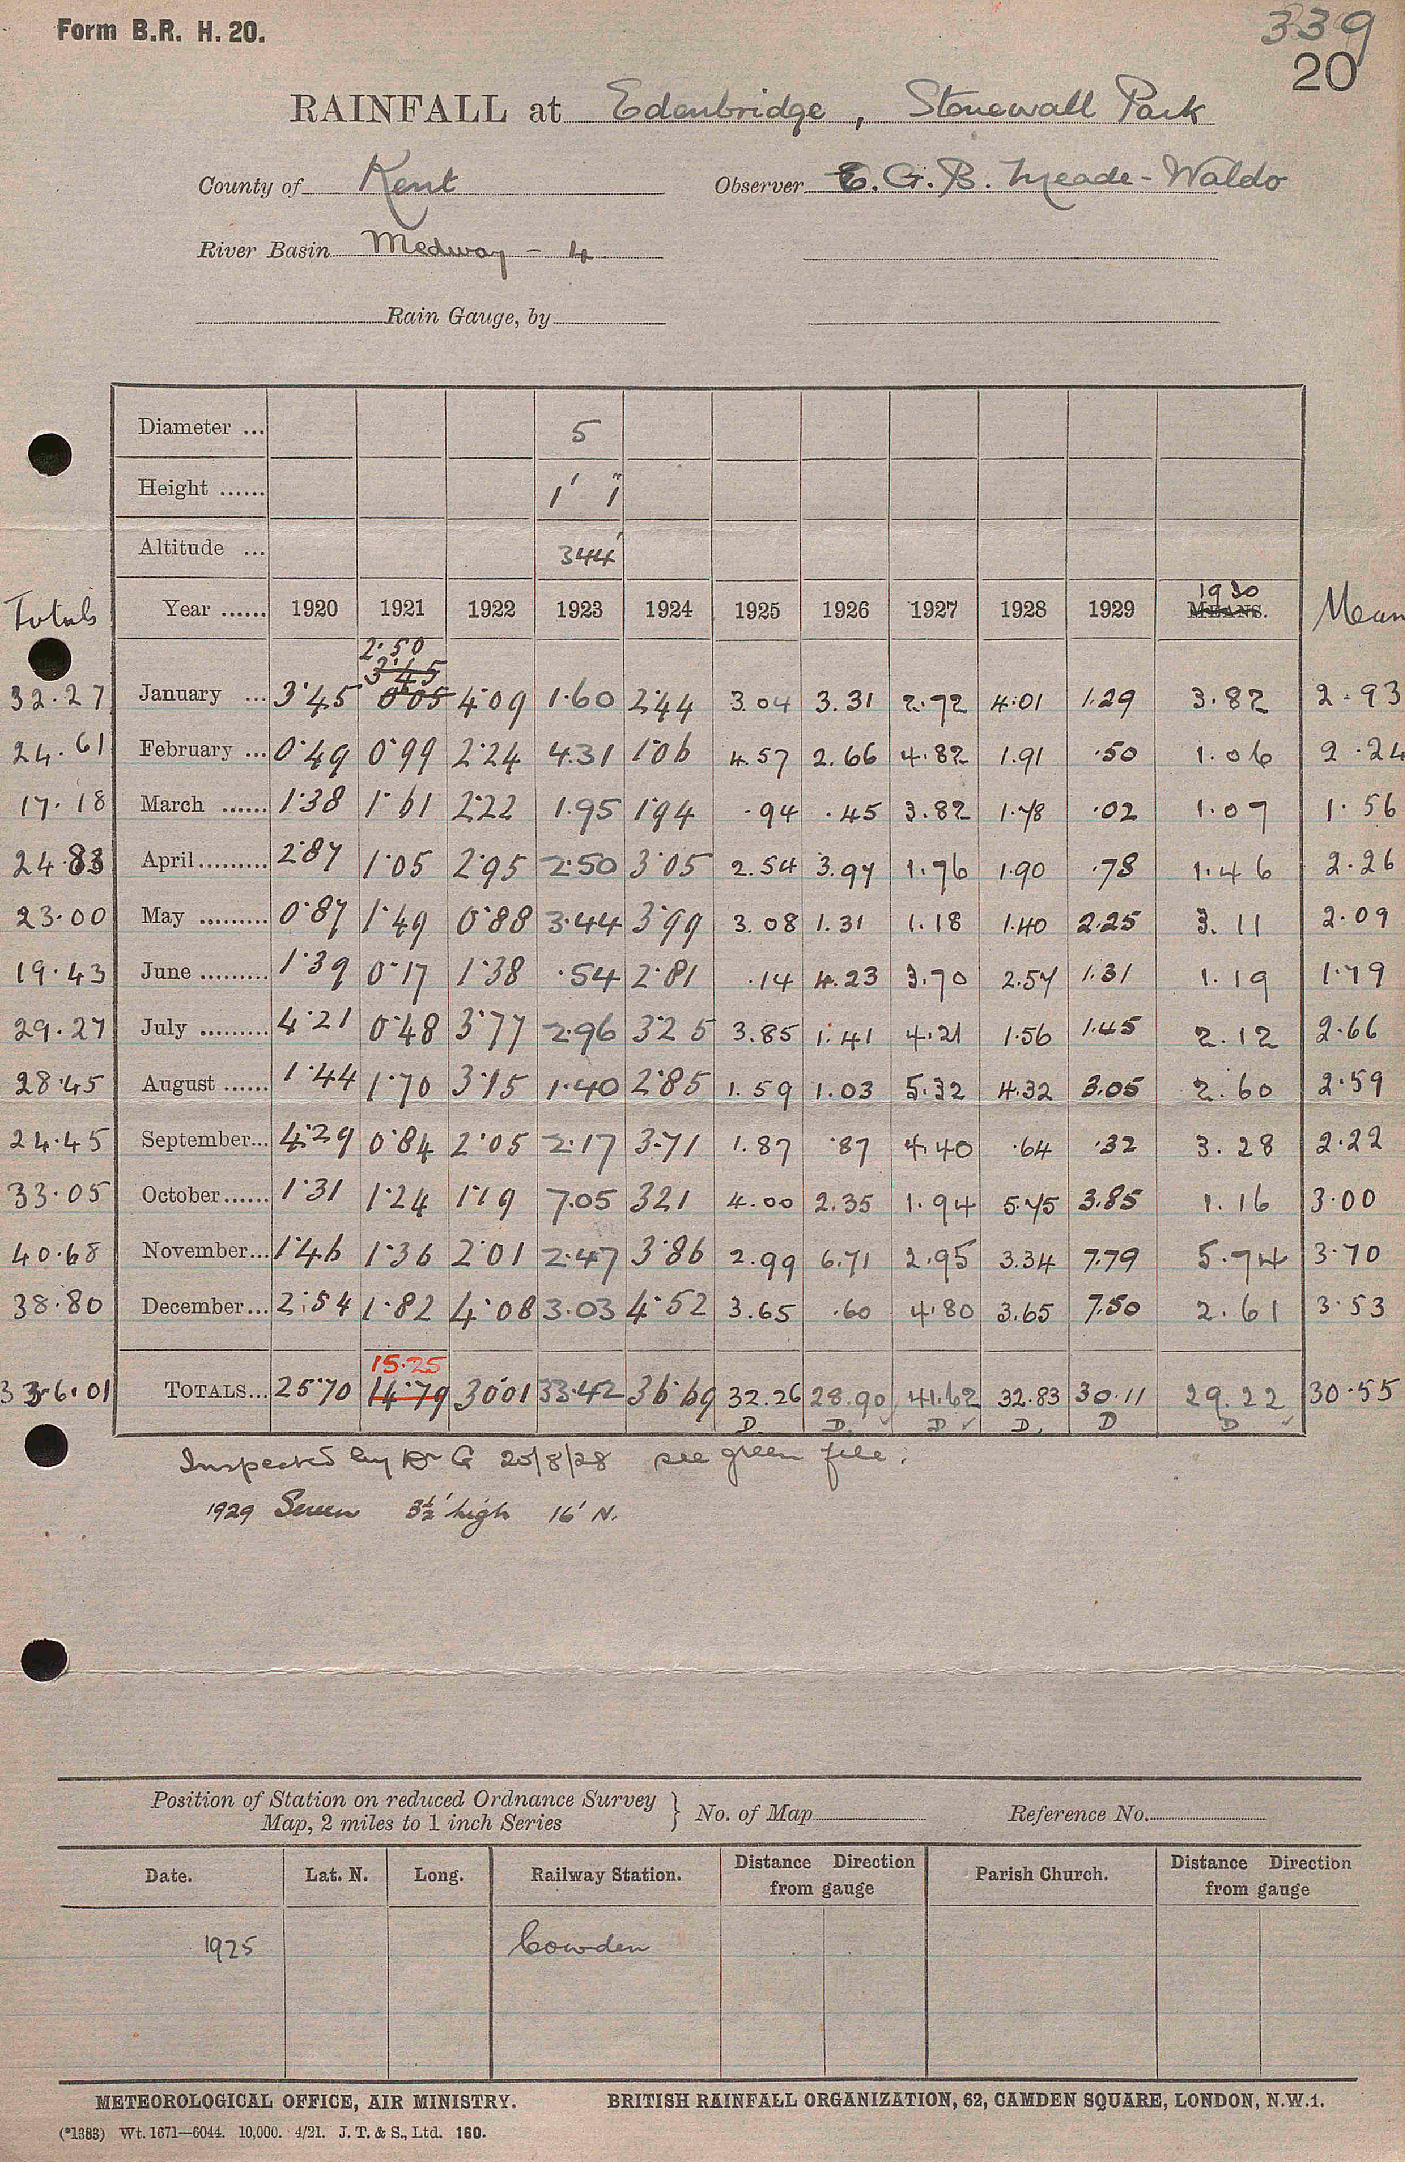 Form B.R. H. 20.
339
20
RAINFALL at Edenbridge, Stonewall Park
County of Kent Observer E. G. B. Meade-Waldo
River Basin Medway - 4
Rain Gauge, by
Diameter ... 5
Height ...... 1' 1"
Altitude ... 344'
Totals Year ...... 1920 1921 1922 1923 1924 1925 1926 1927 1928 1929 1930 MEANS. Mean
2.50
3.45
32.27 January ... 3.45 0.05 4.09 1.60 2.44 3.04 3.31 2.72 4.01 1.29 3.82 2.93
24.61 February ... 0.49 0.99 2.24 4.31 1.06 4.57 2.66 4.82 1.91 .50 1.06 2.24
17.18 March ...... 1.38 1.61 2.22 1.95 1.94 .94 .45 3.82 1.78 .02 1.07 1.56
24.83 April......... 2.87 1.05 2.95 2.50 3.05 2.54 3.97 1.76 1.90 .78 1.46 2.26
23.00 May ......... 0.87 1.49 0.88 3.44 3.99 3.08 1.31 1.18 1.40 2.25 3.11 2.09
19.43 June ......... 1.39 0.17 1.38 .54 2.81 .14 4.23 3.70 2.57 1.31 1.19 1.79
29.27 July ......... 4.21 0.48 3.77 2.96 3.25 3.85 1.41 4.21 1.56 1.45 2.12 2.66
28.45 August ...... 1.44 1.70 3.15 1.40 2.85 1.59 1.03 5.32 4.32 3.05 2.60 2.59
24.45 September... 4.29 0.84 2.05 2.17 3.71 1.87 .87 4.40 .64 .32 3.28 2.22
33.05 October...... 1.31 1.24 1.19 7.05 3.21 4.00 2.35 1.94 5.75 3.85 1.16 3.00
40.68 November... 1.46 1.36 2.01 2.47 3.86 2.99 6.71 2.95 3.34 7.79 5.74 3.70
38.80 December... 2.54 1.82 4.08 3.03 4.52 3.65 .60 4.80 3.65 7.50 2.61 3.53
15.25
336.01 TOTALS... 25.70 14.79 30.01 33.42 36.69 32.26 28.90 41.62 32.83 30.11 29.22 30.55
D D. D ✓ D. D D ✓
Inspected by Dr G 25/8/28 see green file.
1929 Screen 3½' high 16' N.
Position of Station on reduced Ordnance Survey
Map, 2 miles to 1 inch Series } No. of Map Reference No.
Date. Lat. N. Long. Railway Station. Distance Direction from gauge Parish Church. Distance Direction from gauge
1925 Cowden
METEOROLOGICAL OFFICE, AIR MINISTRY. BRITISH RAINFALL ORGANIZATION, 62, CAMDEN SQUARE, LONDON, N.W.1.
(*1383) Wt. 1671—6044. 10,000. 4/21. J. T. & S., Ltd. 160.